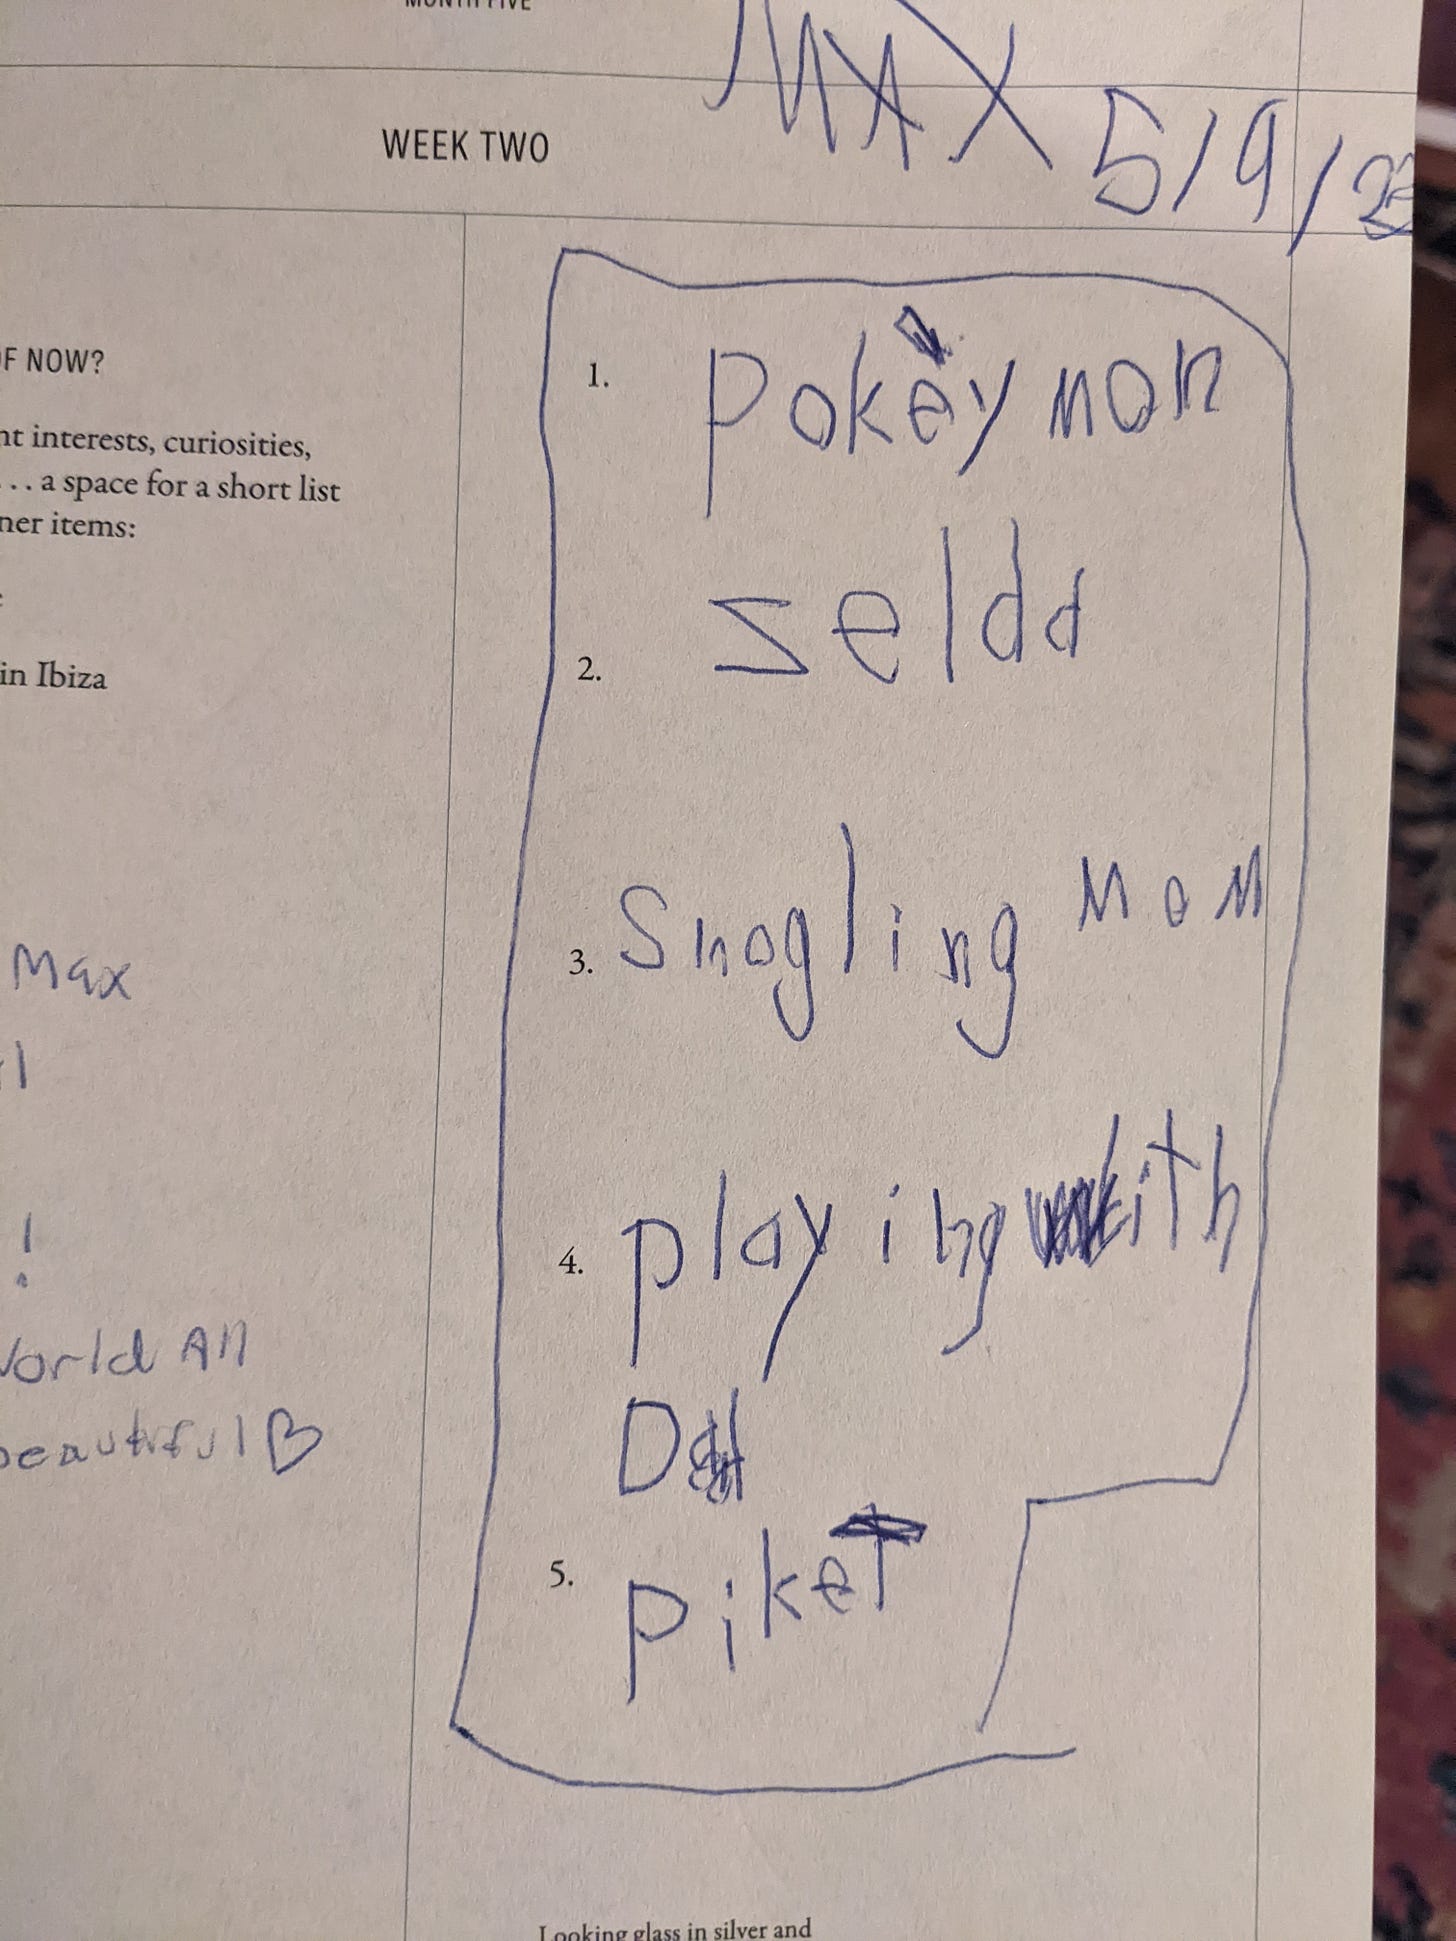 MONTH FIVE
MAX 5/9/23
WEEK TWO
OF NOW?
nt interests, curiosities,
... a space for a short list
ner items:
in Ibiza
Max
!
World All
beautiful♡
1. Pokeymon
2. seldd
3. Snogling Mom
4. playing with
Dad
5. piket
Looking glass in silver and